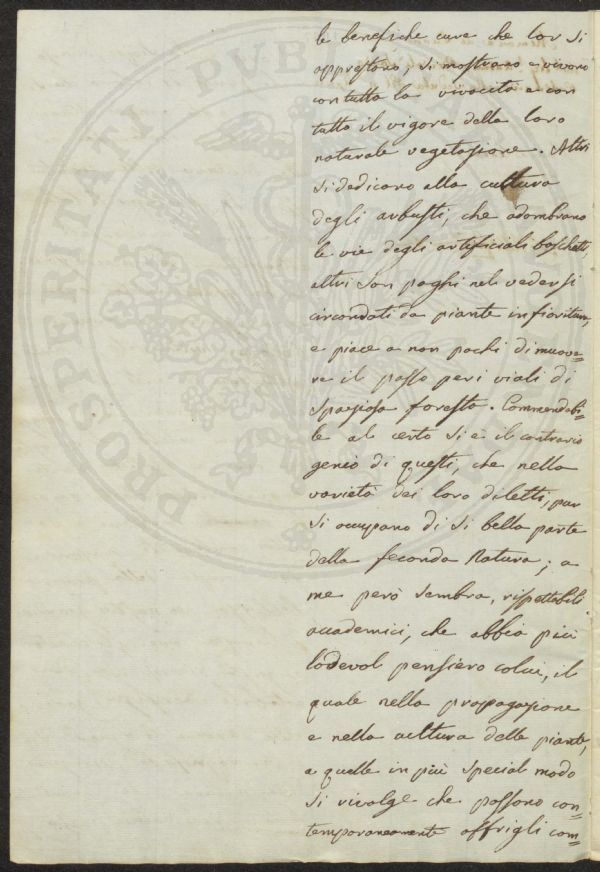 le benefiche cure che lor si
apprestono, si mostrano e vivono
con tutta la vivacità e con
tutto il vigore della loro
naturale vegetazione. Altri
si dedicano alla cultura
degli arbusti, che adombrano
le vie degli artificiali boschetti,
altri son paghi nel vedersi
circondati da piante in fioritura,
e piace a non pochi di muove=
re il passo per i viali di
spaziosa foresta. Commendabi=
le al certo si è il contrario
genio di questi, che nella
varietà dei loro diletti, pur
si occupano di sì bella parte
della feconda Natura; a
me però sembra, rispettabili
accademici, che abbia più
lodevol pensiero colui, il
quale nella propagazione
e nella cultura delle piante,
a quelle in più special modo
si rivolge che possono con=
temporaneamente offrigli com=
PROSPERITATI PUB